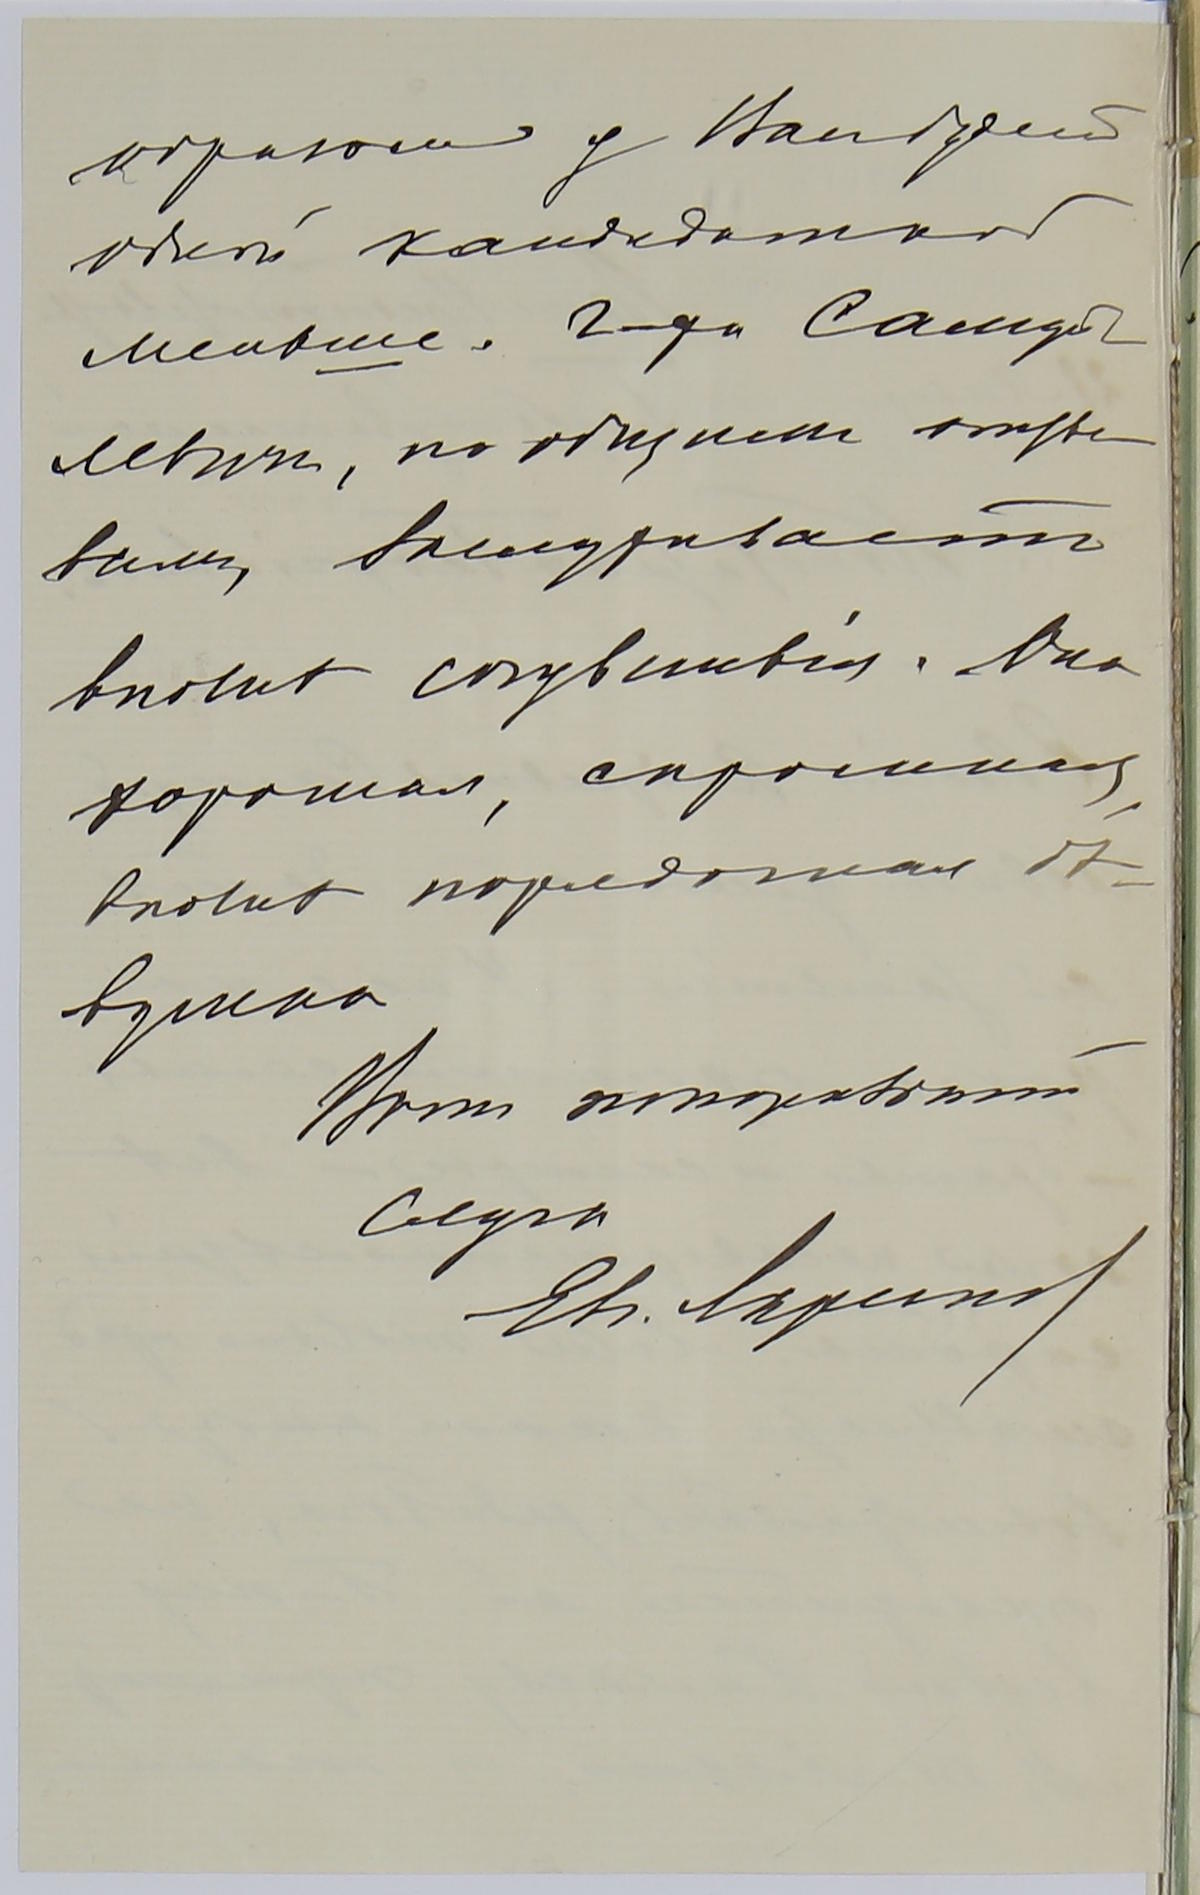 образомъ у Васъ будетъ
одной кандидаткой
меньше. Г-жа Самуй-
левичъ, по общимъ отзы-
вамъ, заслуживаетъ
вполнѣ сочувствія. Она
хорошая, скромная,
вполнѣ порядочная дѣ-
вушка
Вашъ покорный
слуга
Ев.